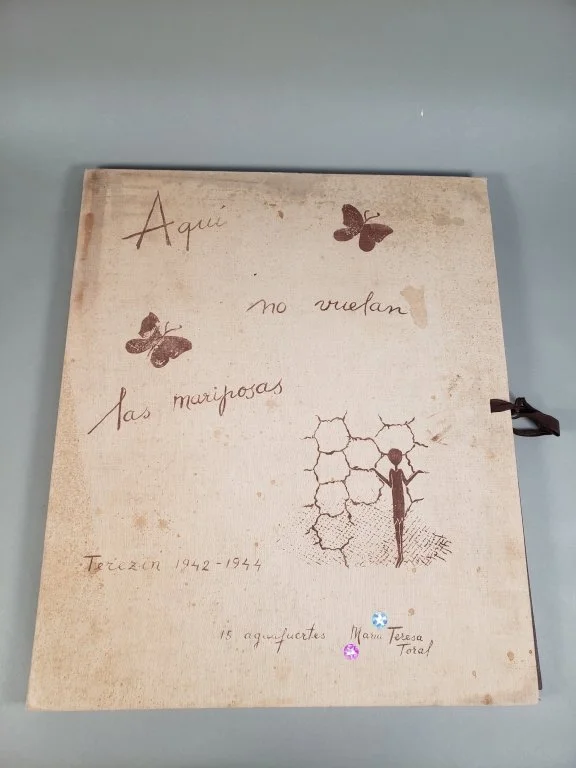 Aquí
no vuelan
las mariposas
Terezin 1942-1944
15 aguafuertes María Teresa
Toral